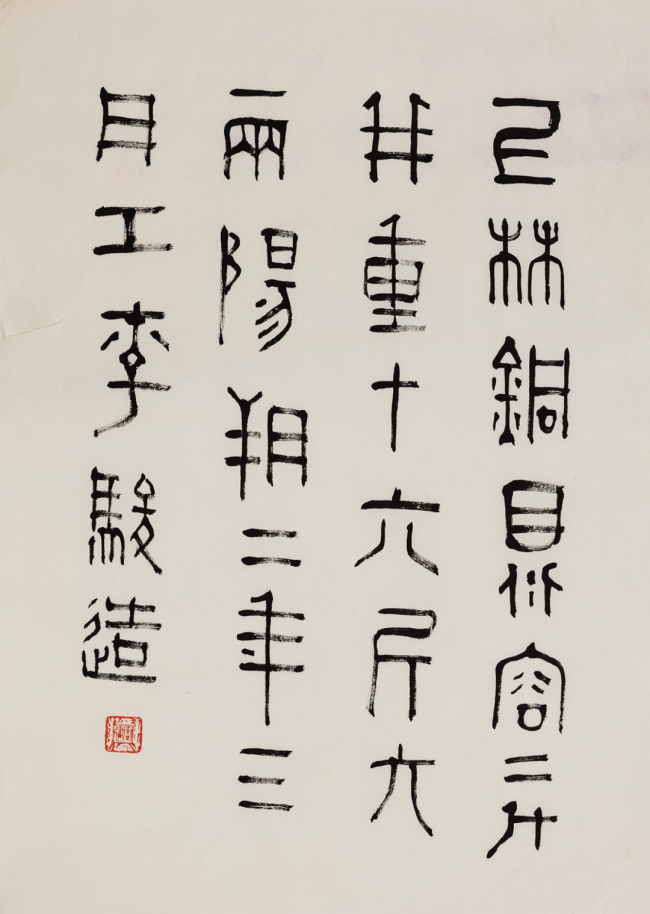 上林銅鼎容二斗
并重十六斤六
兩陽朔二年三
月工李駿造